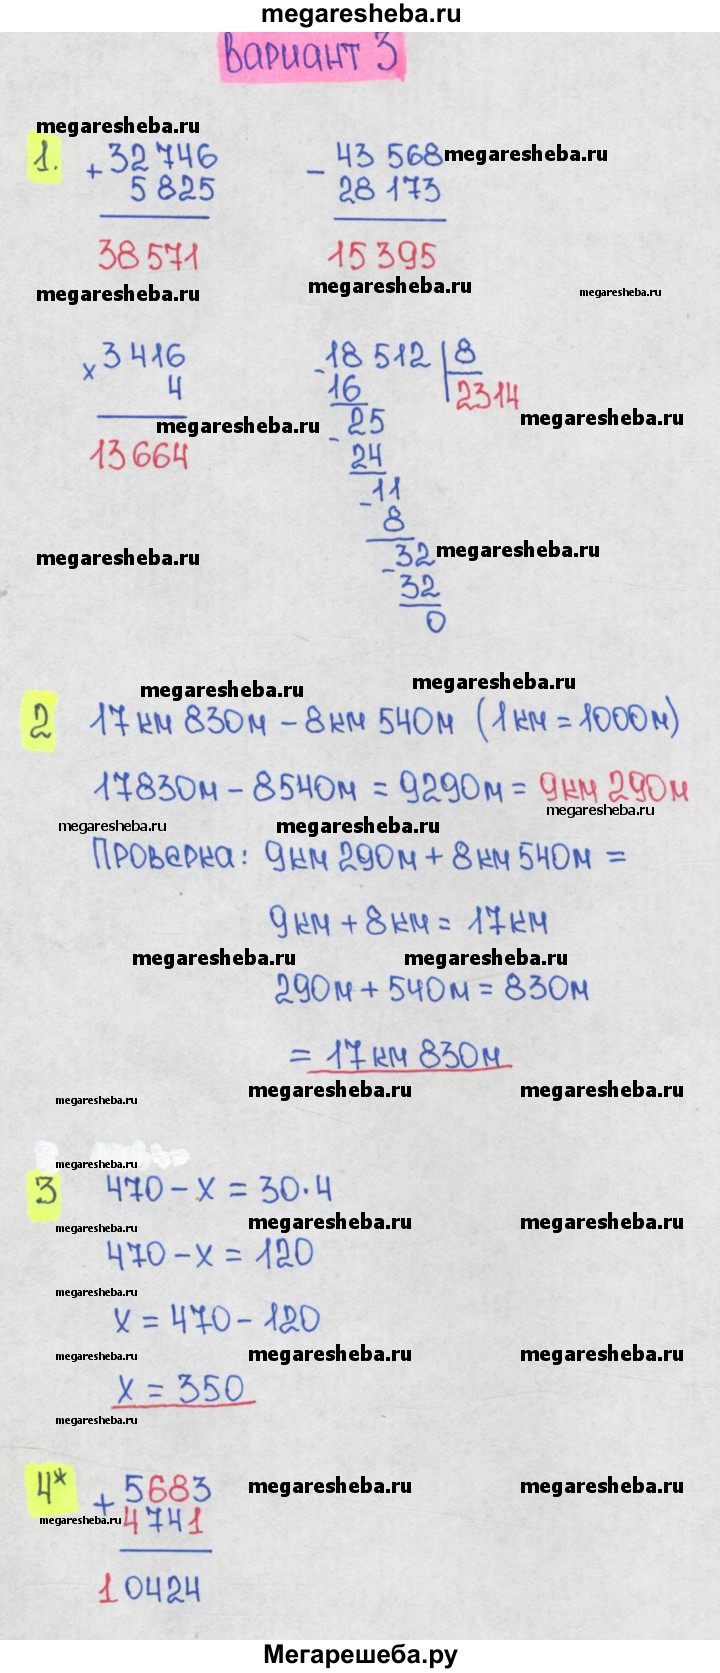 megaresheba.ru
Вариант 3
megaresheba.ru
1. + 32 746
5 825
38 571
- 43 568 megaresheba.ru
28 173
15 395
megaresheba.ru
megaresheba.ru
megaresheba.ru
× 3 416
4
megaresheba.ru
13 664
- 18 512 | 8
16 2314
megaresheba.ru
- 25
24
- 11
8
megaresheba.ru
- 32
megaresheba.ru
32
0
megaresheba.ru
megaresheba.ru
2 17 км 830 м - 8 км 540 м (1 км = 1000 м)
17830 м - 8540 м = 9290 м = 9 км 290 м
megaresheba.ru
megaresheba.ru
megaresheba.ru
Проверка: 9 км 290 м + 8 км 540 м =
9 км + 8 км = 17 км
megaresheba.ru
megaresheba.ru
290 м + 540 м = 830 м
= 17 км 830 м
megaresheba.ru
megaresheba.ru
megaresheba.ru
megaresheba.ru
3 470 - x = 30 · 4
megaresheba.ru
megaresheba.ru
megaresheba.ru
470 - x = 120
megaresheba.ru
x = 470 - 120
megaresheba.ru
megaresheba.ru
megaresheba.ru
x = 350
megaresheba.ru
4* + 5683
megaresheba.ru
megaresheba.ru
megaresheba.ru
4741
10424
Мегарешеба.ру